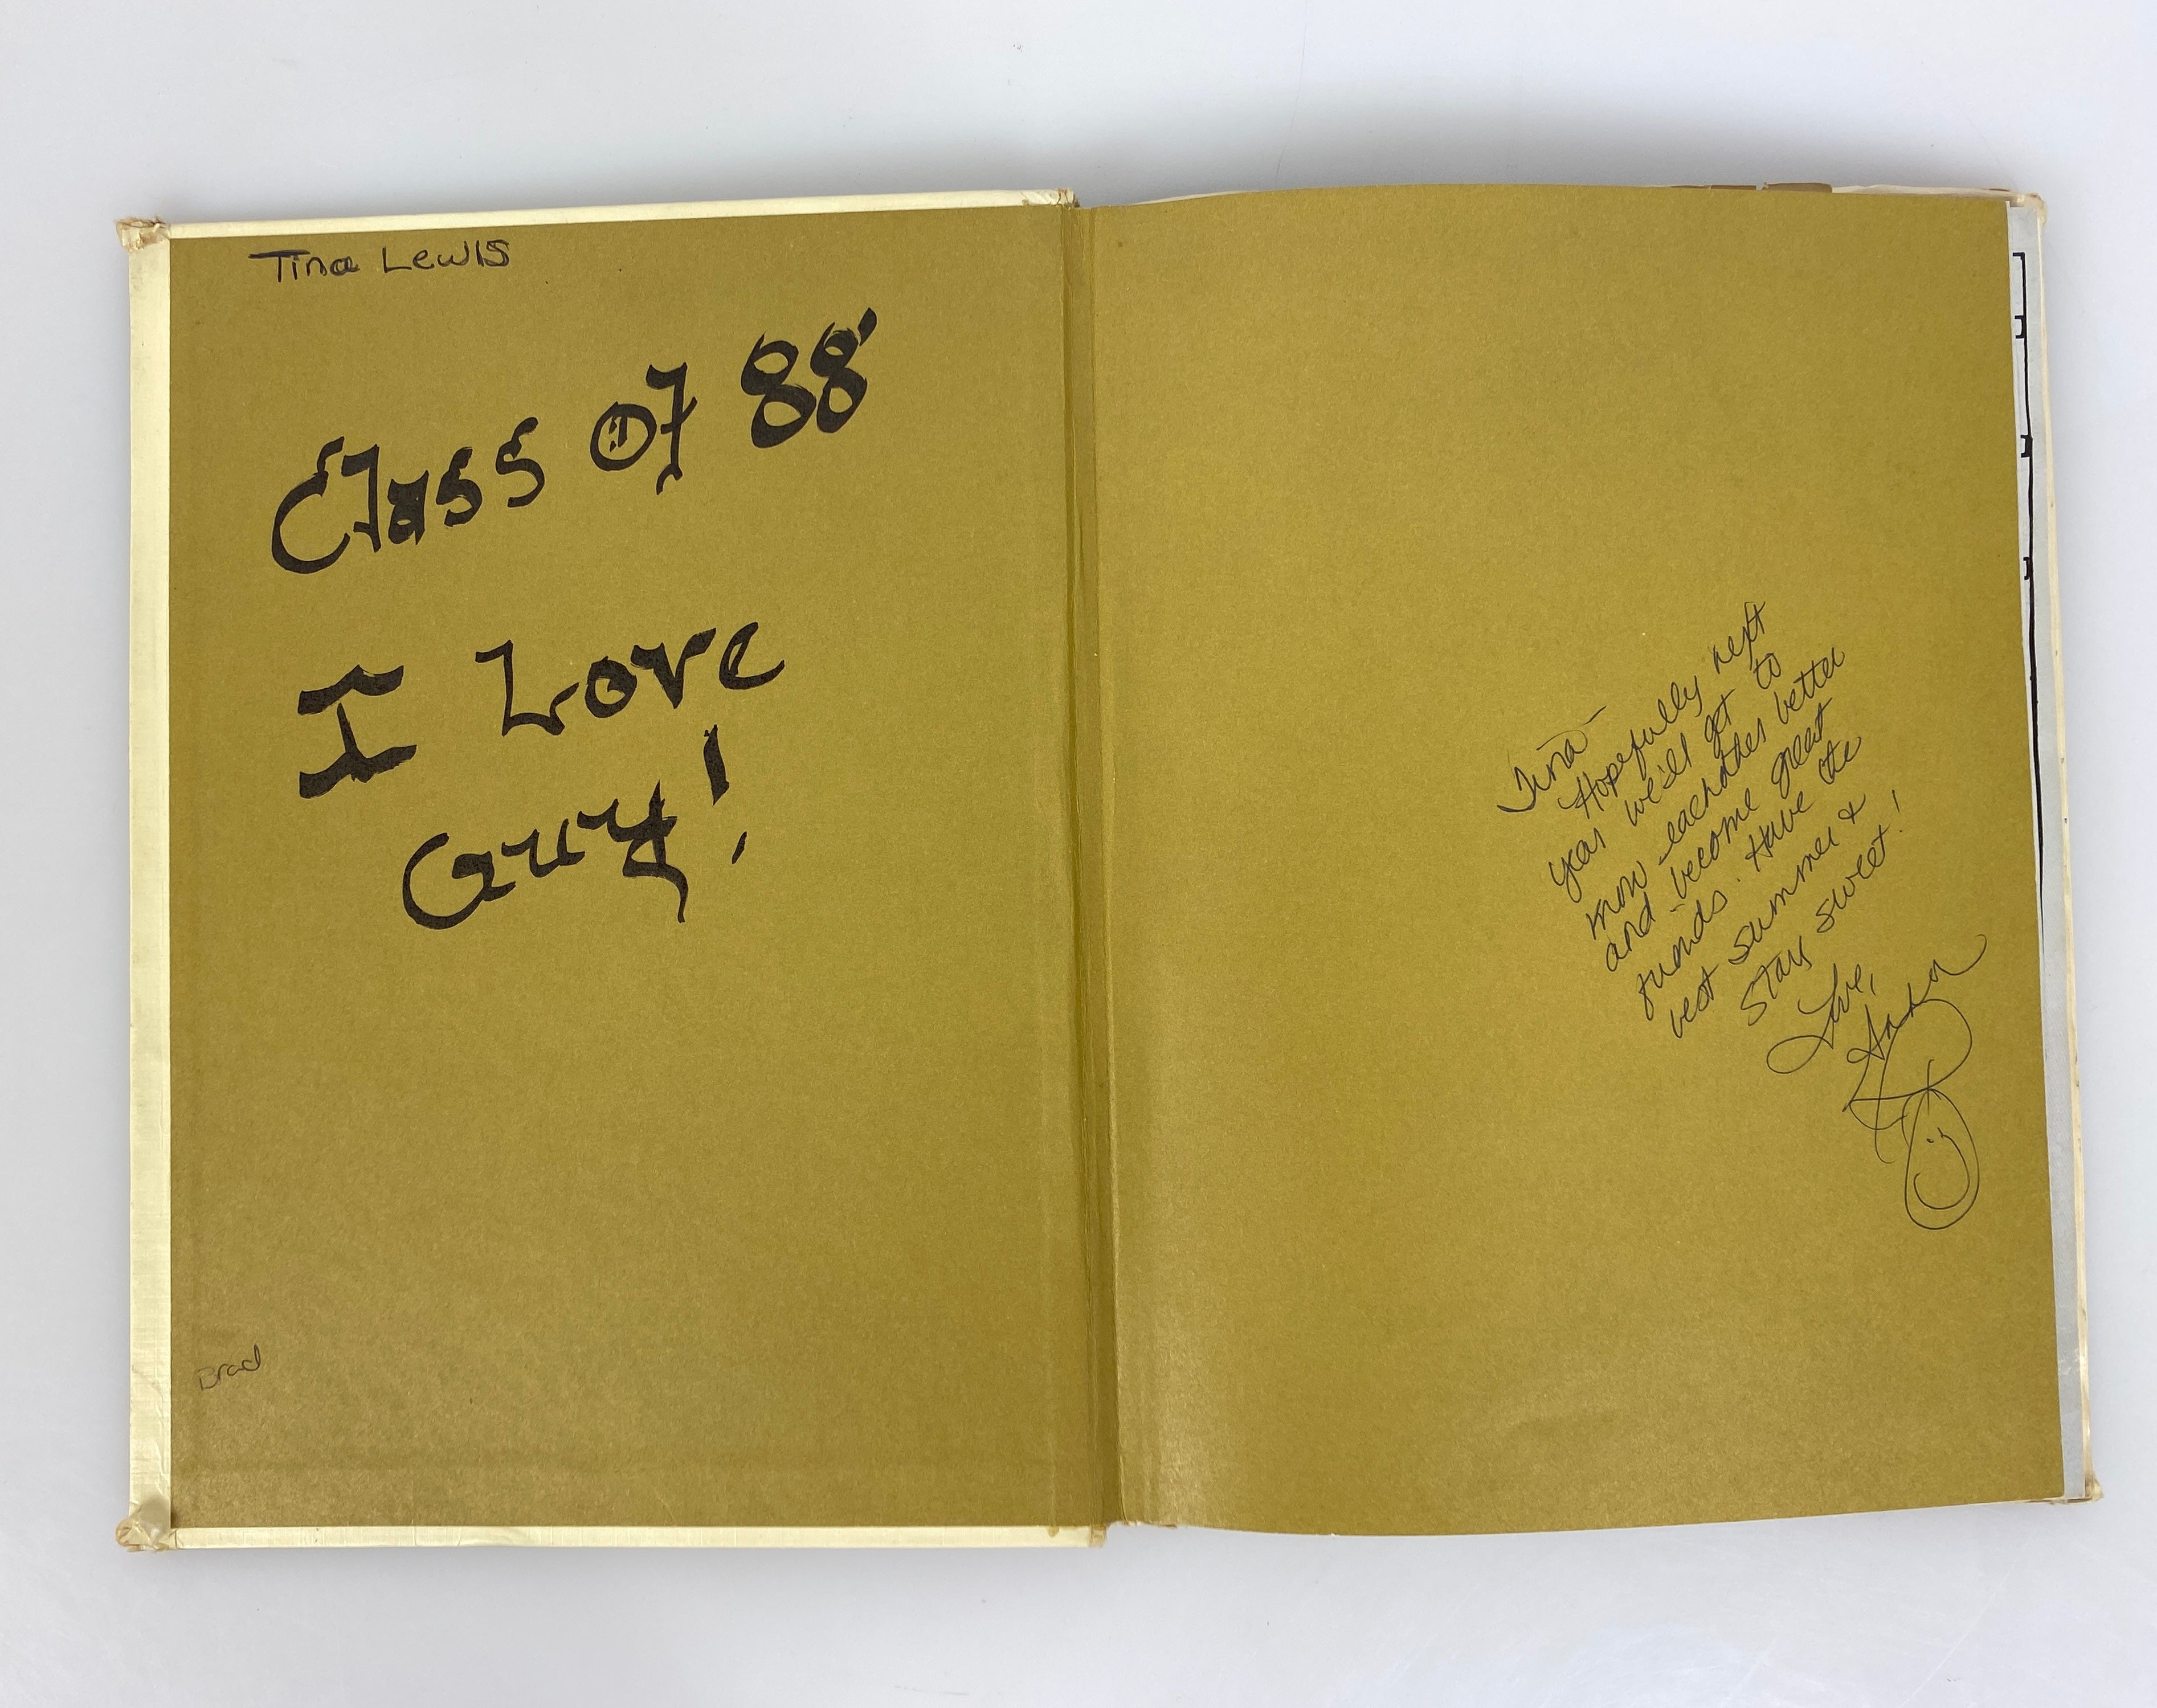 Tina Lewis
Class of 88'
I Love
Guy!
Brad
Tina -
Hopefully next
year we'll get to
know eachother better
and become great
friends. Have the
best summer &
stay sweet!
Love,